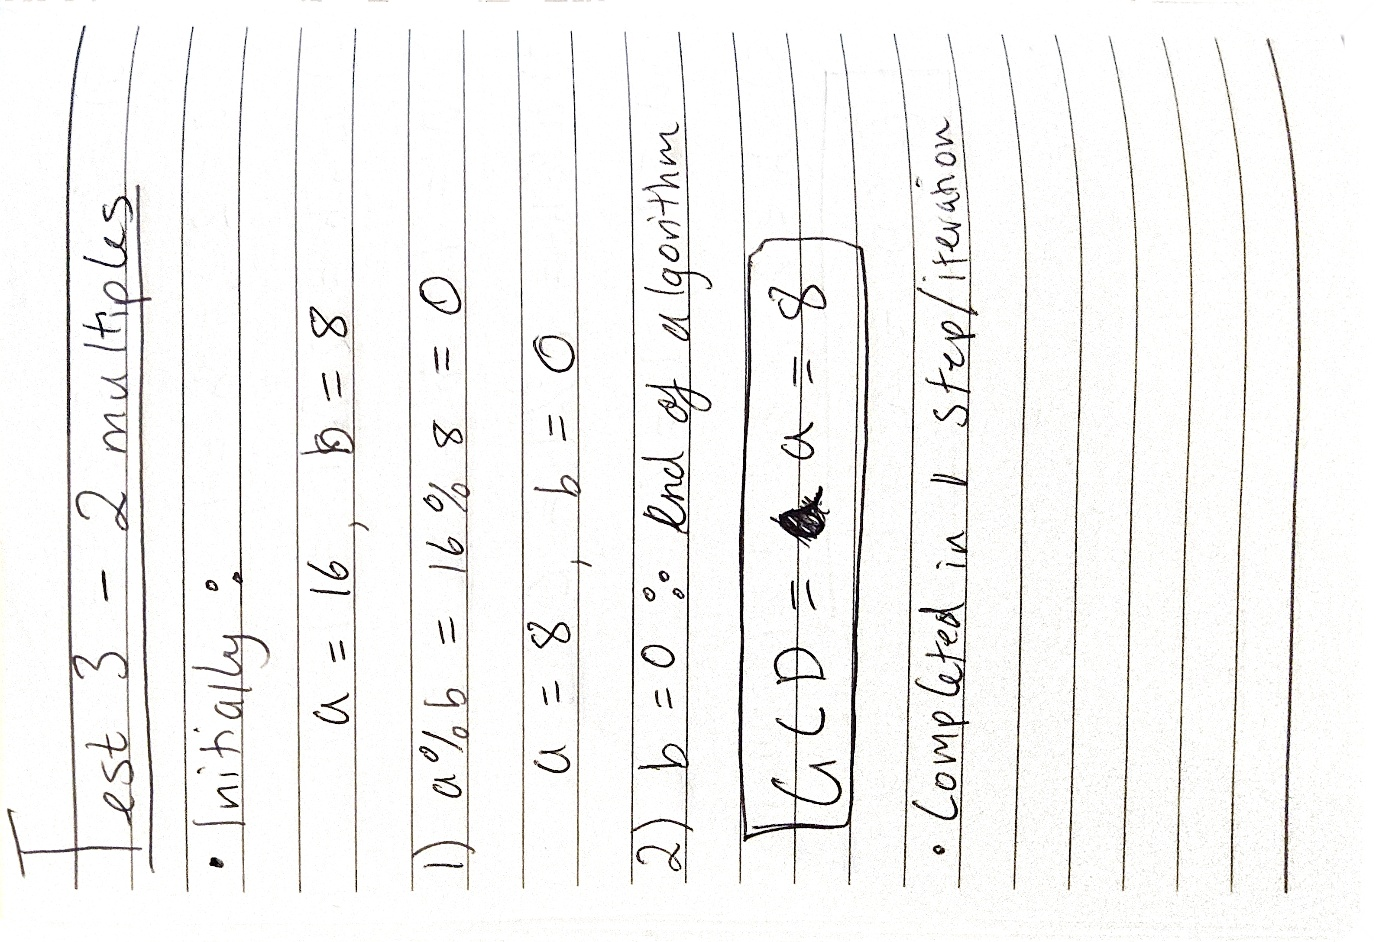 Test 3 - 2 multiples
• Initially:
a = 16, b = 8
1) a%b = 16%8 = 0
a = 8, b = 0
2) b = 0 ∴ end of algorithm
GCD = a = 8
• Completed in 1 step/iteration